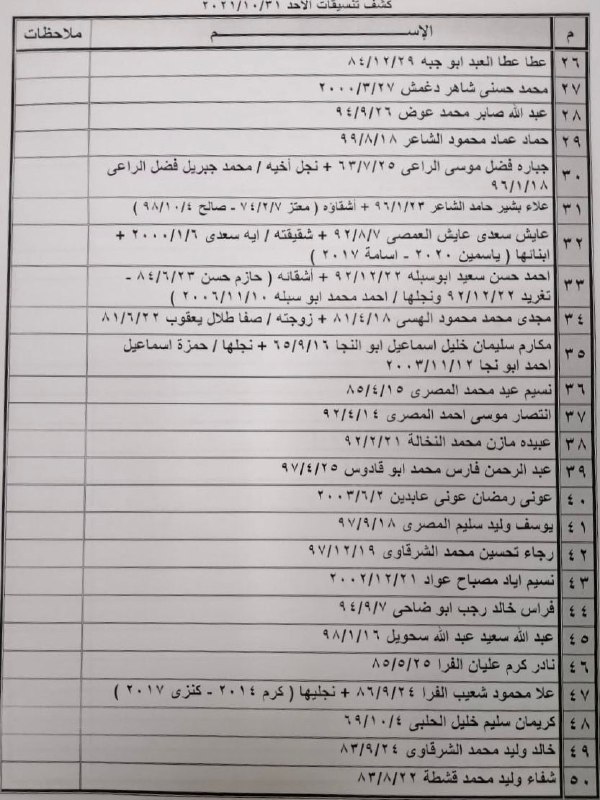 كشف تنسيقات الاحد ٢٠٢١/١٠/٣١
م الإســـم ملاحظات
٢٦ عطا عطا العبد ابو جبه ٨٤/١٢/٢٩
٢٧ محمد حسنى شاهر دغمش ٢٠٠٠/٣/٢٧
٢٨ عبد الله صابر محمد عوض ٩٤/٩/٢٦
٢٩ حماد عماد محمود الشاعر ٩٩/٨/١٨
٣٠ جباره فضل موسى الراعى ٦٣/٧/٢٥ + نجل أخيه / محمد جبريل فضل الراعى
٩٦/١/١٨
٣١ علاء بشير حامد الشاعر ٩٦/١/٢٣ + أشقاؤه ( معتز ٧٤/٢/٧ - صالح ٩٨/١٠/٤ )
٣٢ عايش سعدى عايش العمصى ٩٢/٨/٧ + شقيقته / ايه سعدى ٢٠٠٠/١/٦ +
ابنائها ( ياسمين ٢٠٢٠ - اسامة ٢٠١٧ )
٣٣ احمد حسن سعيد ابوسبله ٩٢/١٢/٢٢ + أشقائه ( حازم حسن ٨٤/٦/٢٣ -
تغريد ٩٢/١٢/٢٢ ونجلها / احمد محمد ابو سبله ٢٠٠٦/١١/١٠ )
٣٤ مجدى محمد محمود الهسى ٨١/٤/١٨ + زوجته / صفا طلال يعقوب ٨١/٦/٢٢
٣٥ مكارم سليمان خليل اسماعيل ابو النجا ٦٥/٩/١٦ + نجلها / حمزة اسماعيل
احمد ابو نجا ٢٠٠٣/١١/١٢
٣٦ نسيم عيد محمد المصرى ٨٥/٤/١٥
٣٧ انتصار موسى احمد المصرى ٩٢/٤/١٤
٣٨ عبيده مازن محمد النخالة ٩٢/٢/٢١
٣٩ عبد الرحمن فارس محمد ابو قادوس ٩٧/٤/٢٥
٤٠ عونى رمضان عونى عابدين ٢٠٠٣/٦/٢
٤١ يوسف وليد سليم المصرى ٩٧/٩/١٨
٤٢ رجاء تحسين محمد الشرقاوى ٩٧/١٢/١٩
٤٣ نسيم اياد مصباح عواد ٢٠٠٢/١٢/٢١
٤٤ فراس خالد رجب ابو ضاحى ٩٤/٩/٧
٤٥ عبد الله سعيد عبد الله سحويل ٩٨/١/١٦
٤٦ نادر كرم عليان الفرا ٨٥/٥/٢٥
٤٧ علا محمود شعيب الفرا ٨٦/٩/٢٤ + نجليها ( كرم ٢٠١٤ - كنزى ٢٠١٧ )
٤٨ كريمان سليم خليل الحلبى ٦٩/١٠/٤
٤٩ خالد وليد محمد الشرقاوى ٨٣/٩/٢٤
٥٠ شفاء وليد محمد قشطة ٨٣/٨/٢٢